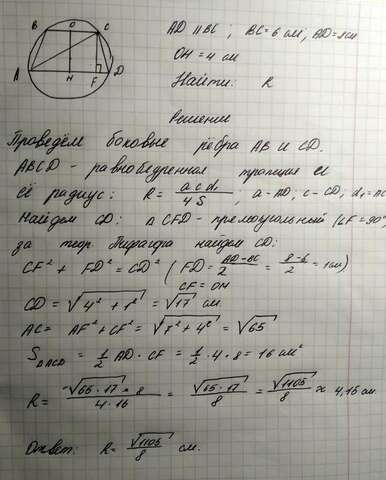 B O C
A H F D
AD ∥ BC ; BC = 6 см, AD = 8 см
OH = 4 см
Найти: R
Решение
Проведём боковые рёбра AB и CD.
ABCD - равнобедренная трапеция и
её радиус: R = a c d₁ / 4S ; a - AD; c - CD; d₁ = AC
Найдем CD: △ CFD - прямоугольный (∠F = 90°
за теор. Пифагора найдем CD:
CF² + FD² = CD² (FD = AD - BC / 2 = 8 - 6 / 2 = 1 см)
CF = OH
CD = √4² + 1² = √17 см.
AC = AF² + CF² = √7² + 4² = √65
S△ACD = 1/2 AD · CF = 1/2 · 4 · 8 = 16 см²
R = √65 · 17 · 8 / 4 · 16 = √65 · 17 / 8 = √1105 / 8 ≈ 4,15 см.
Ответ: R = √1105 / 8 см.